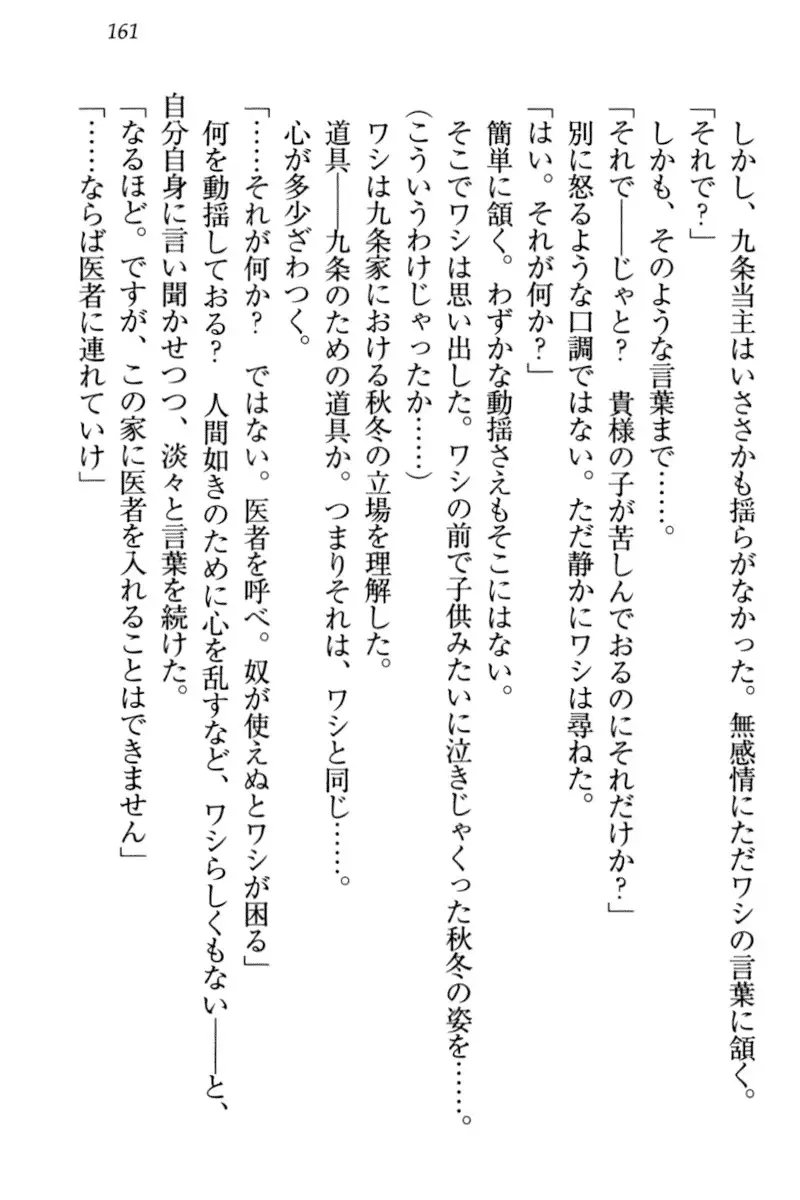 161
しかし、九条当主はいささかも揺らがなかった。無感情にただワシの言葉に頷く。
「それで？」
しかも、そのような言葉まで……。
「それで――じゃと？　貴様の子が苦しんでおるのにそれだけか？」
別に怒るような口調ではない。ただ静かにワシは尋ねた。
「はい。それが何か？」
簡単に頷く。わずかな動揺さえもそこにはない。
そこでワシは思い出した。ワシの前で子供みたいに泣きじゃくった秋冬の姿を……。
（こういうわけじゃったか……）
ワシは九条家における秋冬の立場を理解した。
道具――九条のための道具か。つまりそれは、ワシと同じ……。
心が多少ざわつく。
「……それが何か？　ではない。医者を呼べ。奴が使えぬとワシが困る」
何を動揺しておる？　人間如きのために心を乱すなど、ワシらしくもない――と、
自分自身に言い聞かせつつ、淡々と言葉を続けた。
「なるほど。ですが、この家に医者を入れることはできません」
「……ならば医者に連れていけ」